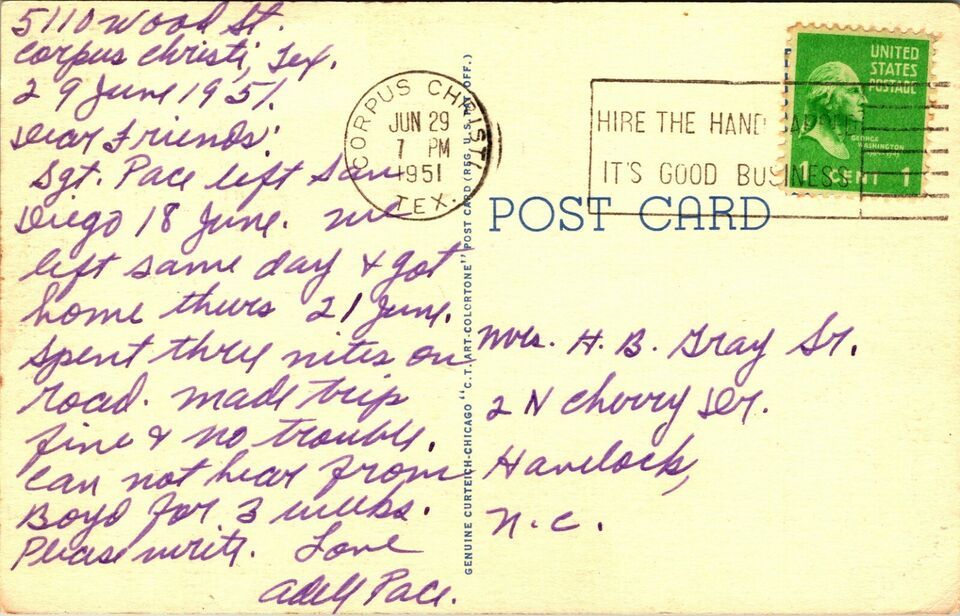 5110 Wood St.
Corpus Christi, Tex.
29 June 1951.
Dear Friends:
Sgt. Pace left San
Diego 18 June. We
left same day & got
home thurs 21 June.
Spent three nites on
road. made trip
fine & no trouble.
Can not hear from
Boyd for 3 weeks.
Please write. Love
Adell Pace.
CORPUS CHRISTI
JUN 29
7 PM
1951
TEX.
HIRE THE HANDICAPPED
IT'S GOOD BUSINESS
UNITED
STATES
POSTAGE
GEORGE
WASHINGTON
1 CENT 1
POST CARD
GENUINE CURTEICH-CHICAGO "C.T. ART-COLORTONE" POST CARD (REG. U.S. PAT. OFF.)
Mrs. H. B. Gray Sr.
2 N Cherry Dr.
Havelock,
N.C.